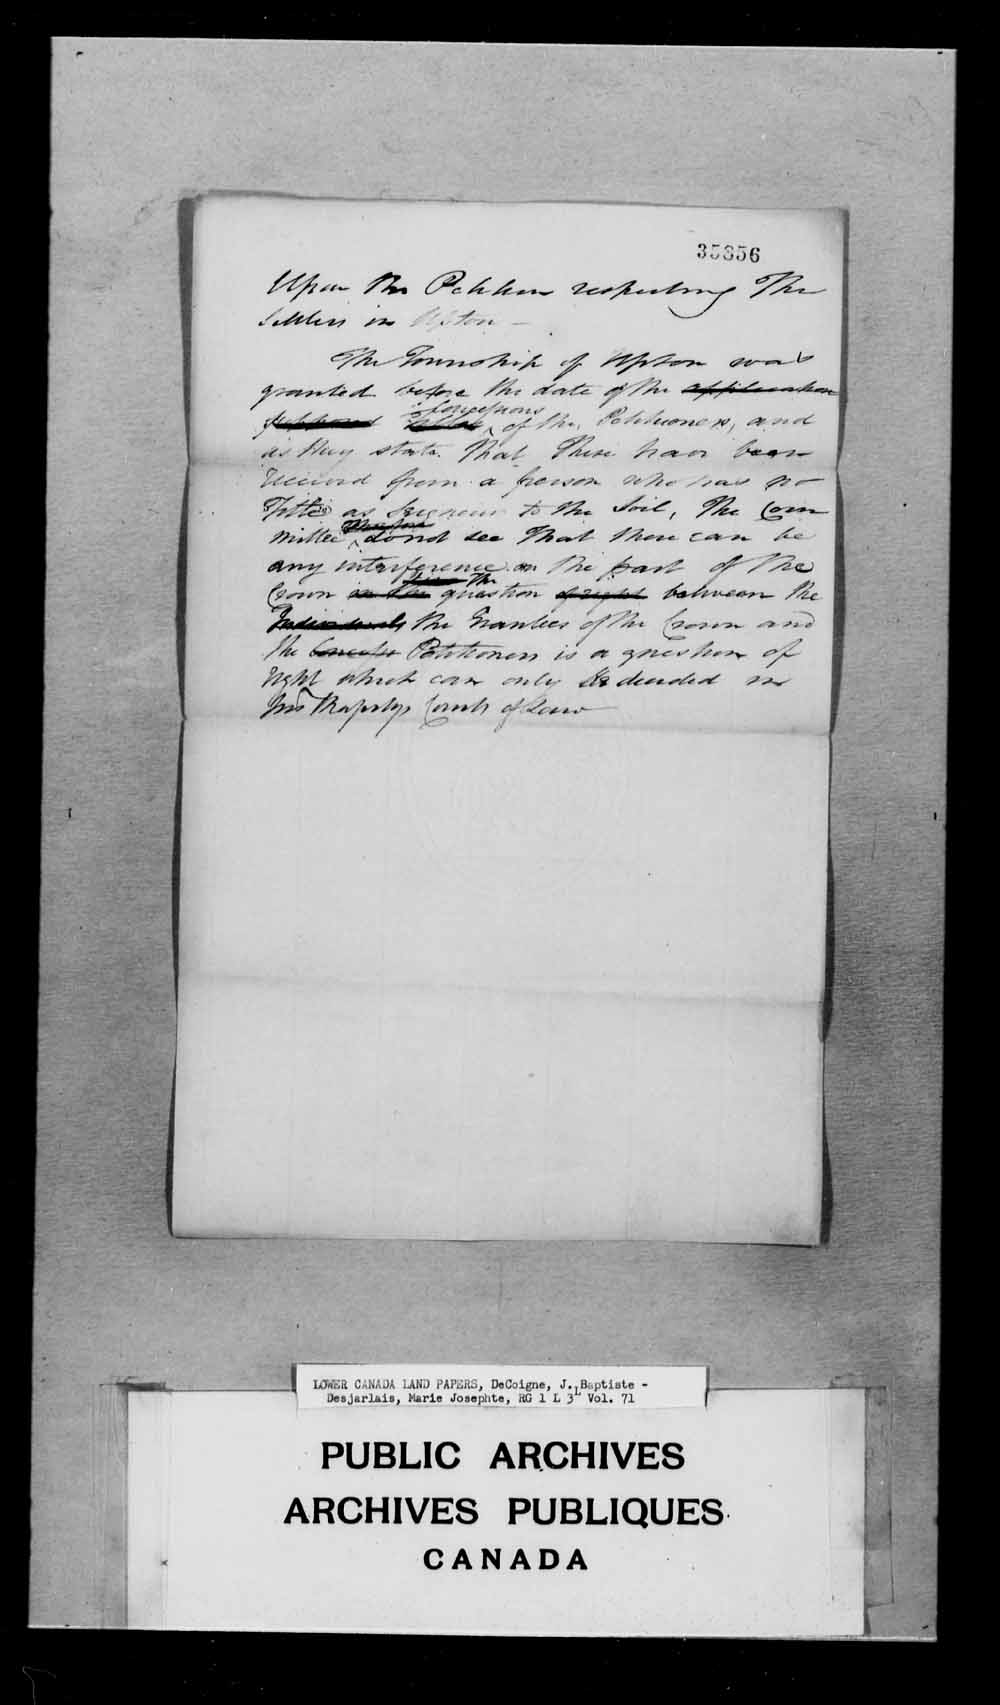 35356
Upon the Petition respecting The
Settlers in Upton –
The Township of Upton was
granted before the date of the application
supposed titles Concessions of the Petitioners, and
as they state that these have been
received from a person who has no
Title as Seigneur to the Soil, The Com
mittee therefore do not see that there can be
any interference on the part of the
Crown in the The question of right between the
Individuals the Grantees of the Crown and
the Petitioners is a question of
right which can only be decided in
His Majestys Courts of Law
LOWER CANADA LAND PAPERS, DeCoigne, J. Baptiste -
Desjarlais, Marie Josephte, RG 1 L 3L Vol. 71
PUBLIC ARCHIVES
ARCHIVES PUBLIQUES
CANADA